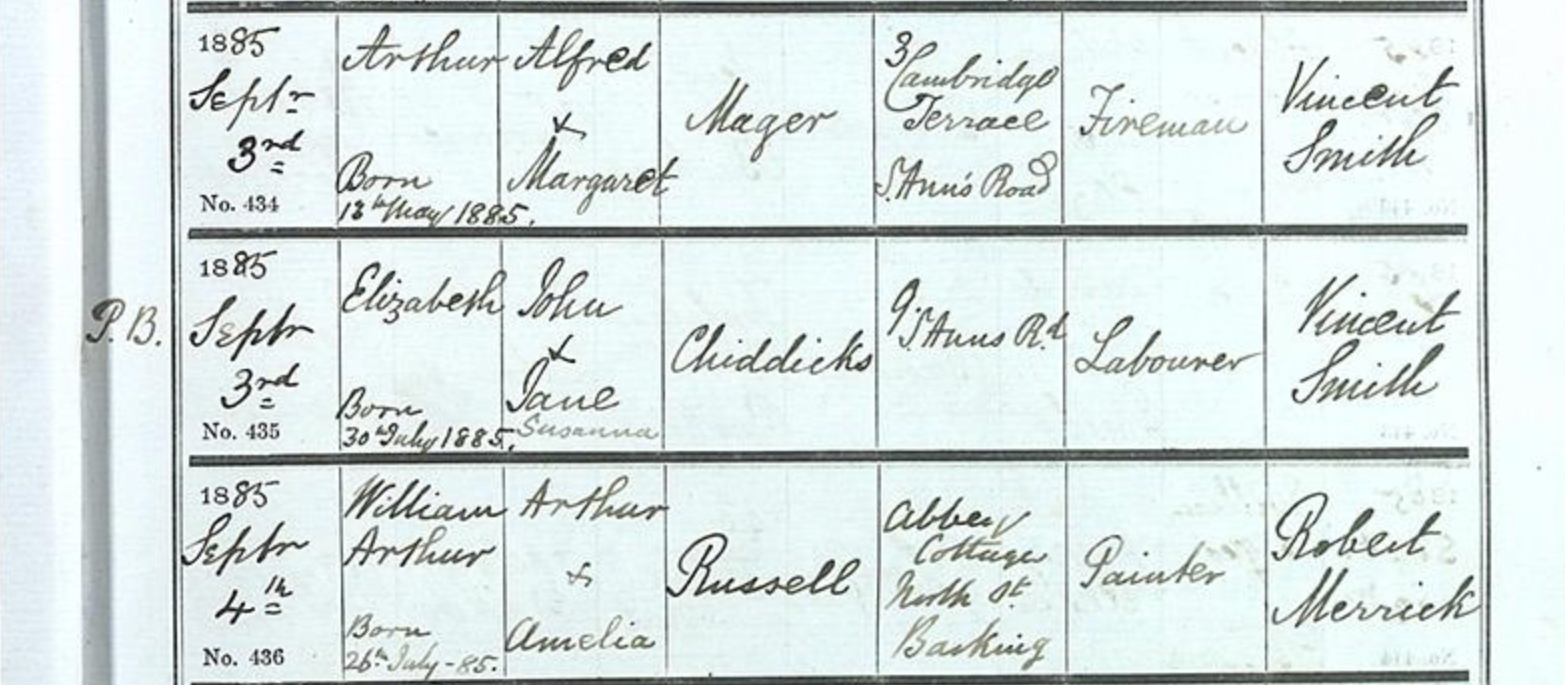 1885
Septr
3rd
No. 434
Arthur
Born
13th May 1885.
Alfred
+
Margaret
Mager
3 Cambridge
Terrace
St. Ann's Road
Fireman
Vincent
Smith
P.B.
1885
Septr
3rd
No. 435
Elizabeth
Born
30th July 1885.
John
+
Jane
Susanna
Chiddicks
9.
St. Anns Rd.
Labourer
Vincent
Smith
1885
Septr
4th
No. 436
William
Arthur
Born
26th July -85.
Arthur
+
Amelia
Russell
Abbey
Cottage
North St.
Barking
Painter
Robert
Merrick